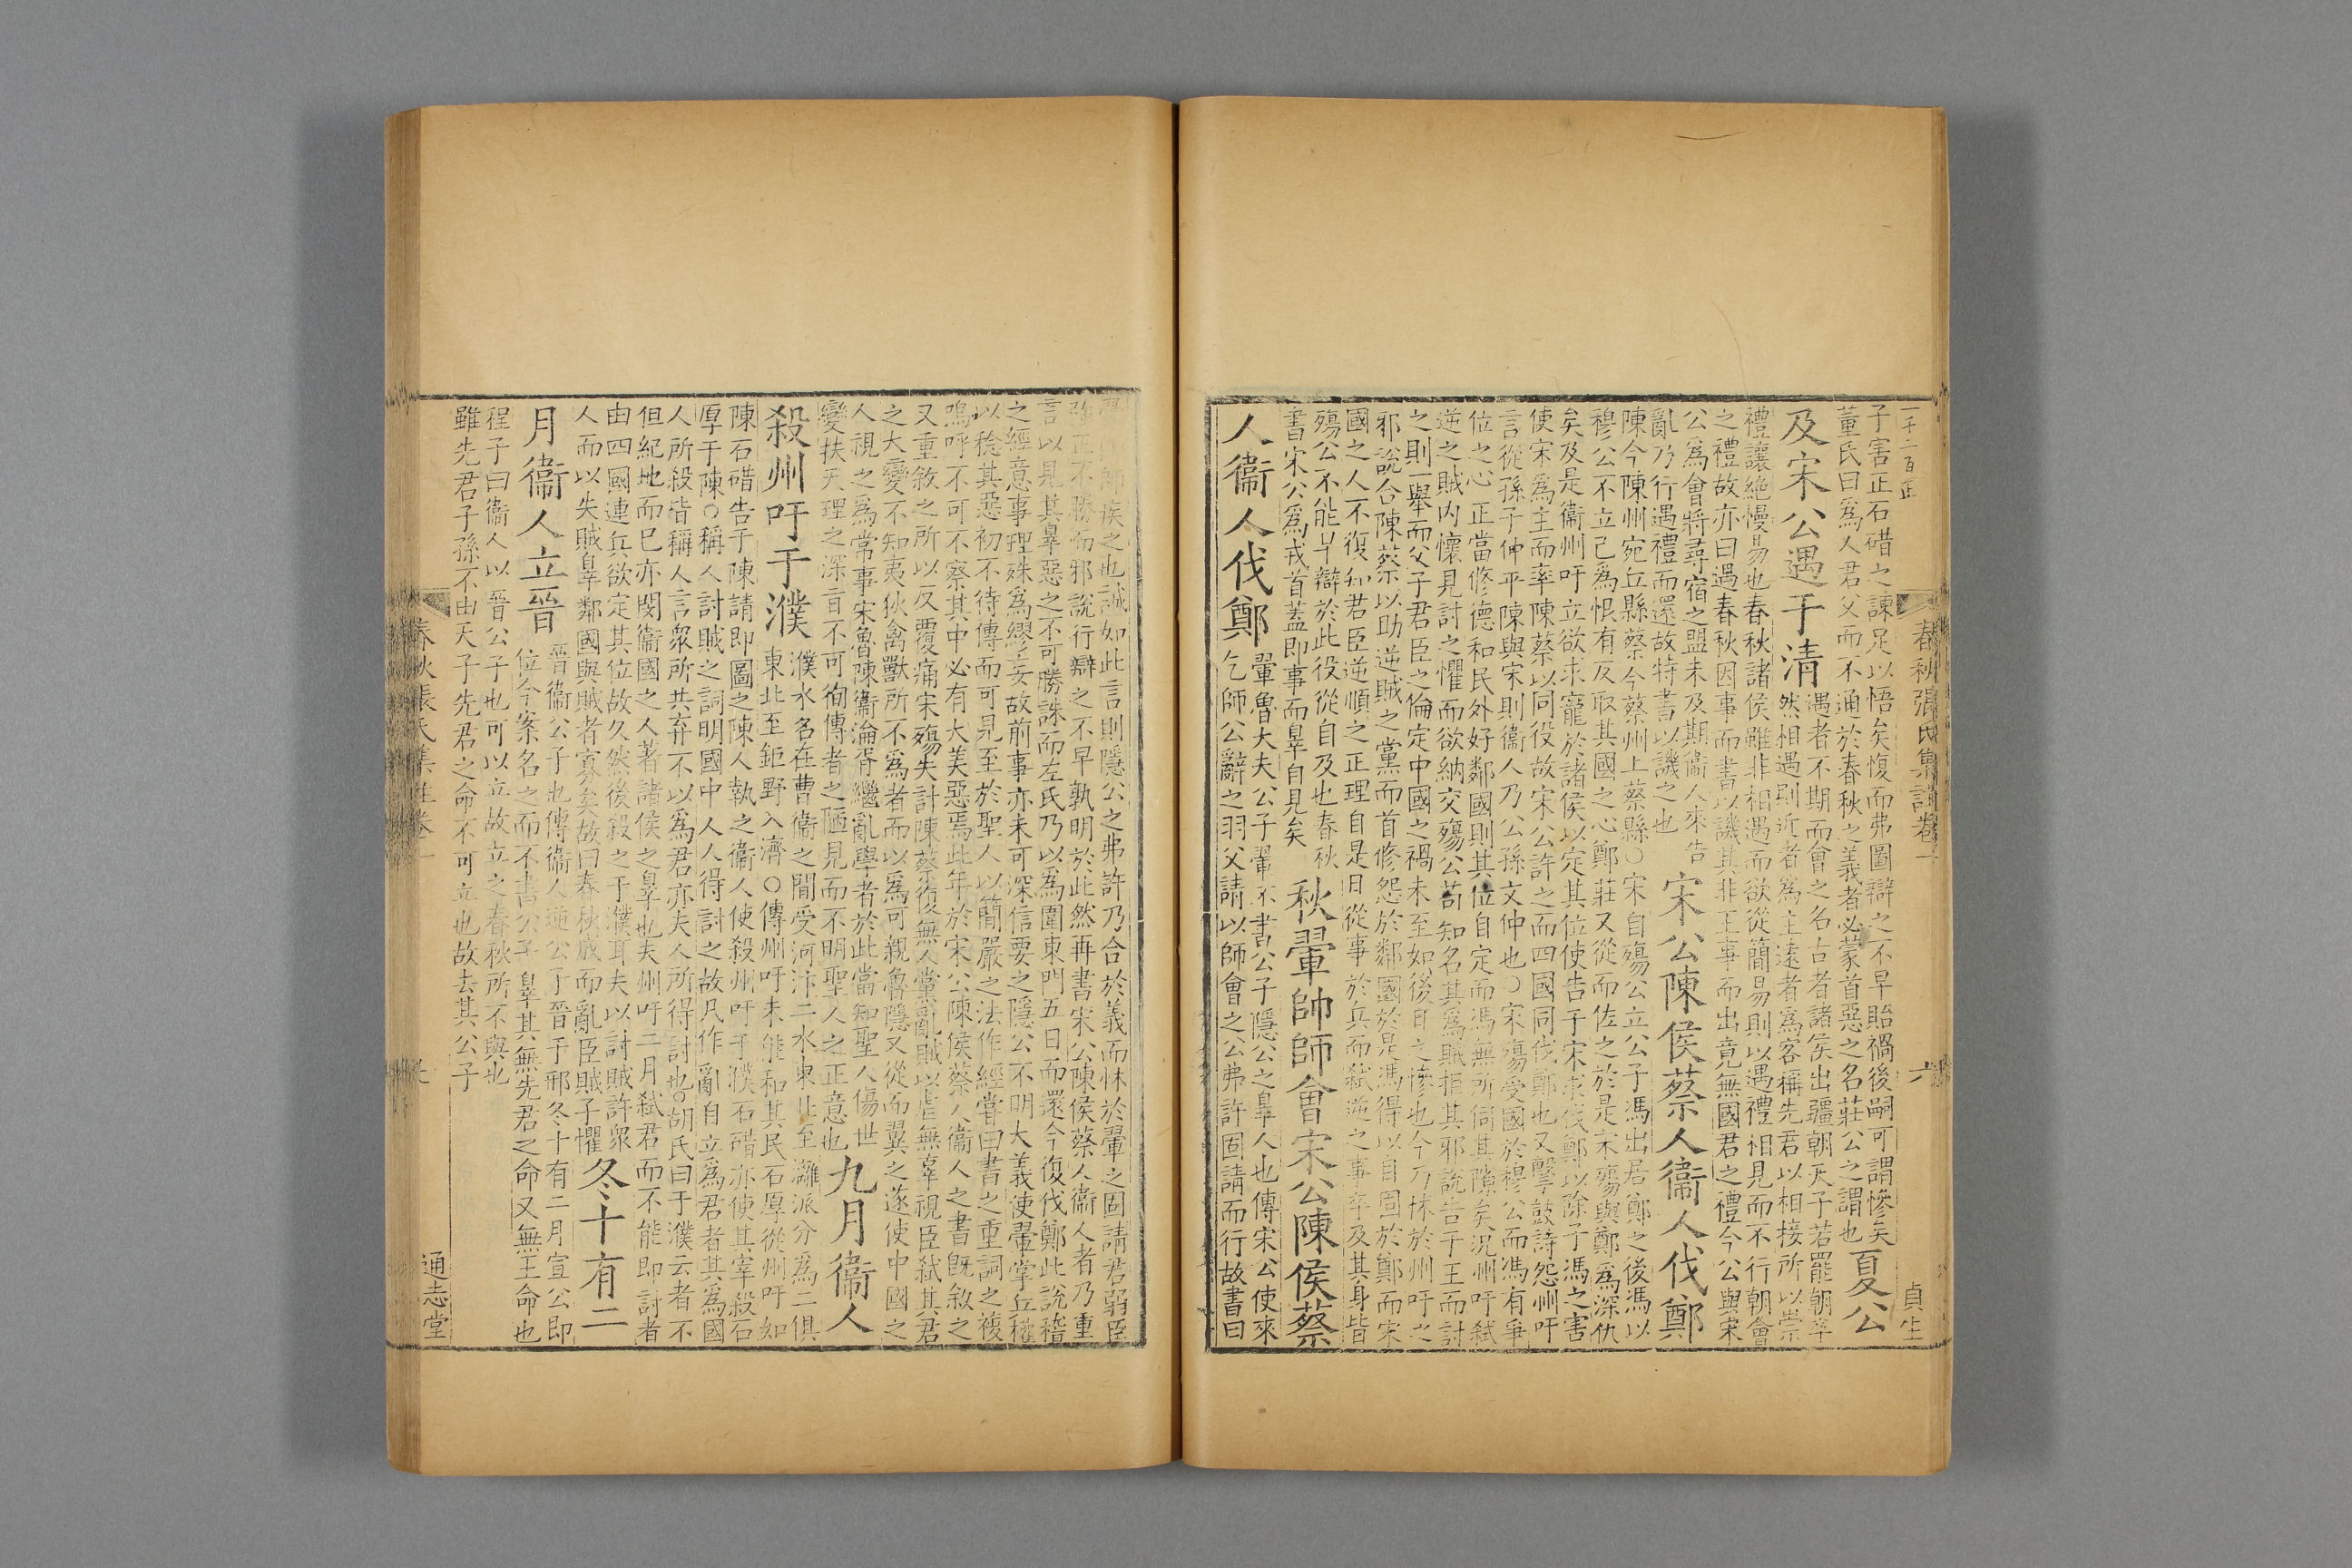 一千二百正
春秋張氏集註卷一
六
貞生
子害正石碏之諫足以悟矣愎而弗圖辯之不早貽禍後嗣可謂慘矣
董氏曰爲人君父而不通於春秋之義者必蒙首惡之名莊公之謂也
夏公
及宋公遇于清
遇者不期而會之名古者諸侯出疆朝天子若罷朝卒
然相遇則近者爲主遠者爲客稱先君以相接所以崇
禮讓絶慢易也春秋諸侯雖非相遇而欲從簡易則以遇禮相見而不行朝會
之禮故亦曰遇春秋因事而書以譏其非王事而出竟無國君之禮今公與宋
公爲會將尋宿之盟未及期衞人來告
亂乃行遇禮而還故特書以譏之也
宋公陳侯蔡人衞人伐鄭
陳今陳州宛丘縣蔡今蔡州上蔡縣○宋自殤公立公子馮出居鄭之後馮以
穆公不立己爲恨有反取其國之心鄭莊又從而佐之於是宋殤與鄭爲深仇
矣及是衞州吁立欲求寵於諸侯以定其位使告于宋求伐鄭以除子馮之害
使宋爲主而率陳蔡以同役故宋公許之而四國同伐鄭也又擊鼓詩怨州吁
言從孫子仲平陳與宋則衞人乃公孫文仲也○宋殤受國於穆公而馮有爭
位之心正當修德和民外好鄰國則其位自定而馮無所伺其隙矣況州吁弑
逆之賊内懷見討之懼而欲納交殤公苟知名其爲賊拒其邪說告于王而討
之則一舉而父子君臣之倫定中國之禍未至如後日之慘也今乃怵於州吁之
邪說合陳蔡以助逆賊之黨而首修怨於鄰國於是馮得以自固於鄭而宋
國之人不復知君臣逆順之正理自是日從事於兵而弑逆之事卒及其身皆
殤公不能早辯於此役從自及也春秋
書宋公爲戎首蓋即事而辠自見矣
秋翬帥師會宋公陳侯蔡
人衞人伐鄭
翬魯大夫公子翬不書公子隱公之辠人也傳宋公使來
乞師公辭之羽父請以師會之公弗許固請而行故書曰
翬帥師疾之也誠如此言則隱公之弗許乃合於義而怵於翬之固請君弱臣
強正不勝而邪說行辯之不早孰明於此然再書宋公陳侯蔡人衞人者乃重
言以見其辠惡之不可勝誅而左氏乃以爲圍東門五日而還今復伐鄭此說稽
之經意事理殊爲繆妄故前事亦未可深信要之隱公不明大義使翬掌兵權
以稔其惡初不待傳而可見至於聖人以簡嚴之法作經嘗曰書之重詞之複
嗚呼不可不察其中必有大美惡焉此年於宋公陳侯蔡人衞人之書既敘之
又重敘之所以反覆痛宋殤失計陳蔡復無人黨亂賊以虐無辜視臣弑其君
之大變不知夷狄禽獸所不爲者而以爲可親魯隱又從而翼之遂使中國之
人視之爲常事宋魯陳衞淪胥繼亂學者於此當知聖人傷世
變扶天理之深旨不可徇傳者之陋見而不明聖人之正意也
九月衞人
殺州吁于濮
濮水名在曹衞之間受河汴二水東北至灉派分爲二俱
東北至鉅野入濟○傳州吁未能和其民石厚從州吁如
陳石碏告于陳請即圖之陳人執之衞人使殺州吁于濮石碏亦使其宰殺石
厚于陳○稱人討賊之詞明國中人人得討之故凡作亂自立爲君者其爲國
人所殺皆稱人言衆所共弃不以爲君亦夫人所得討也○胡氏曰于濮云者不
但紀地而已亦閔衞國之人著諸侯之辠也夫州吁二月弑君而不能即討者
由四國連兵欲定其位故久然後殺之于濮耳夫以討賊許衆
人而以失賊辠鄰國與賊者寡矣故曰春秋成而亂臣賊子懼
冬十有二
月衞人立晉
晉衞公子也傳衞人逆公子晉于邢冬十有二月宣公即
位今案名之而不書公子辠其無先君之命又無王命也
程子曰衞人以晉公子也可以立故立之春秋所不與也
雖先君子孫不由天子先君之命不可立也故去其公子
春秋張氏集註卷一
七
通志堂